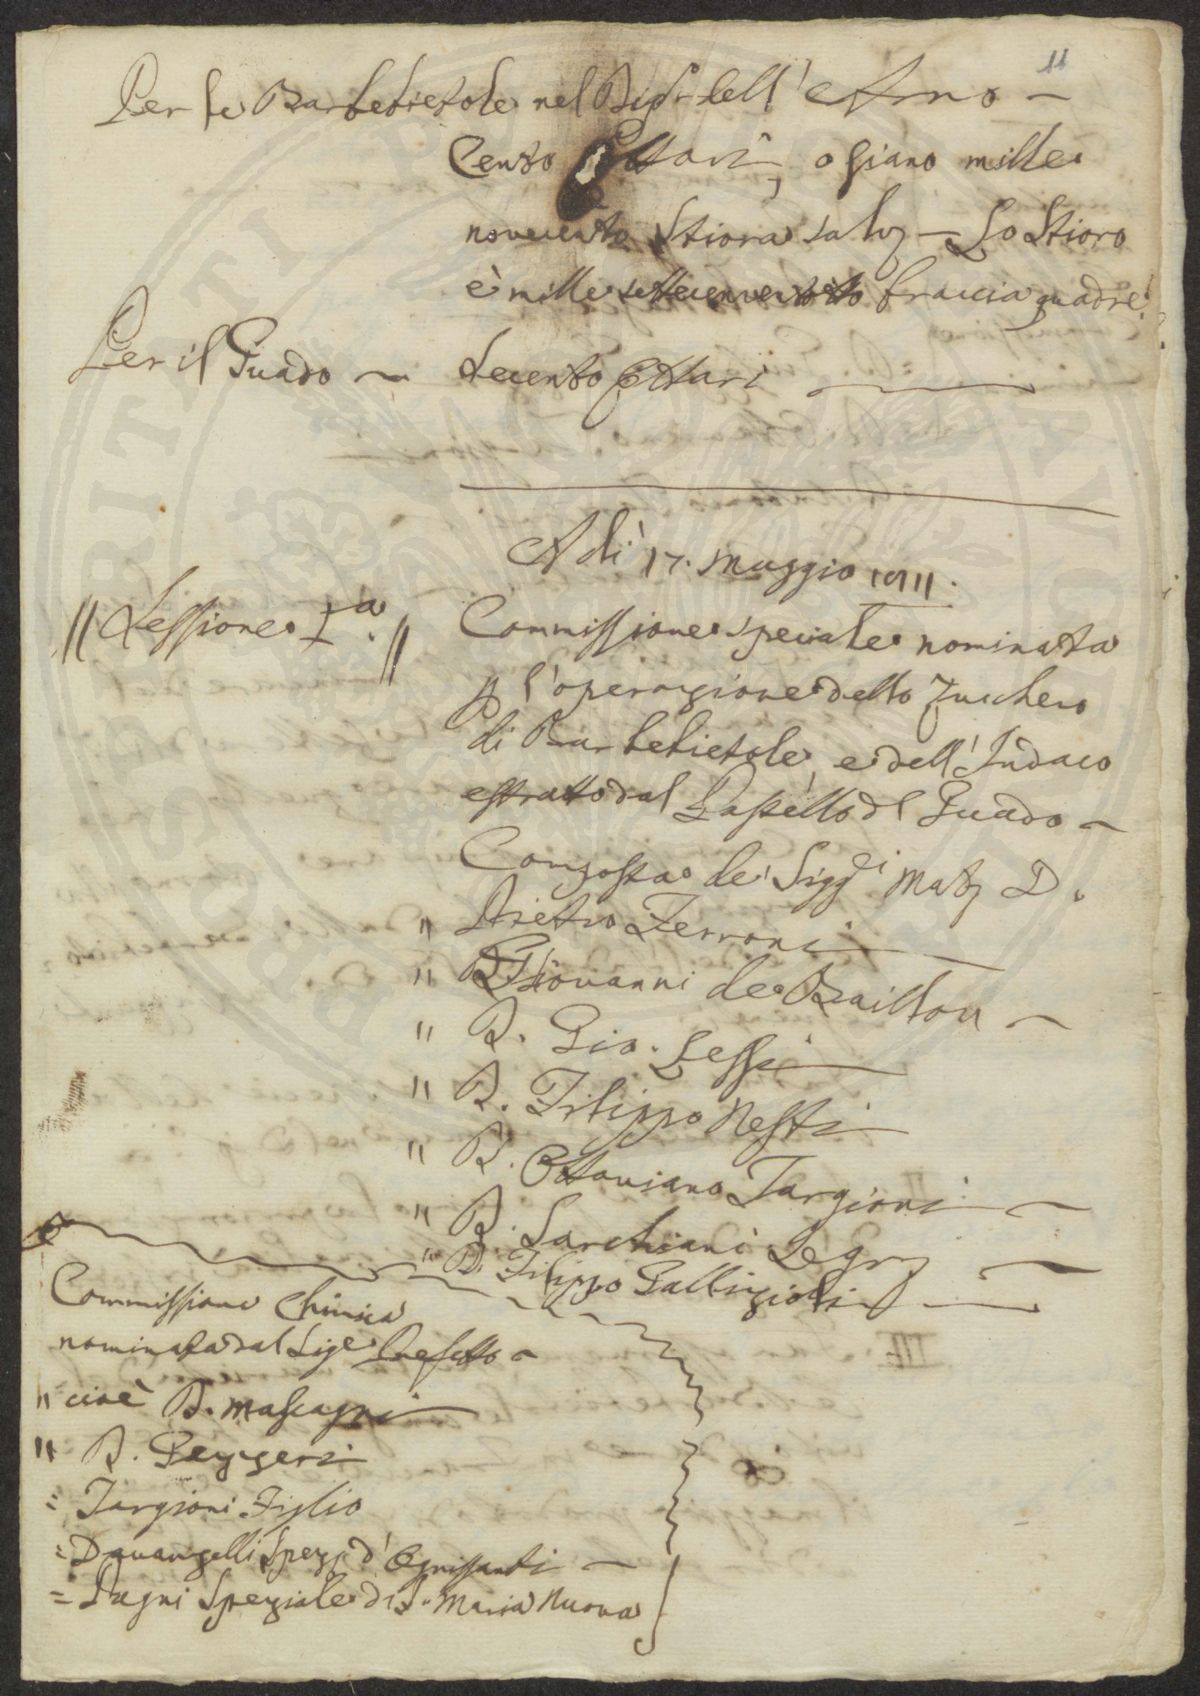 11
Per le Barbebietole nel Dip. dell' Arno —
Cento Ettari, o siano mille
novecento Stiora salvo — Lo Stioro
è mille settecenventotto braccia quadre
Per il Guado — Decento Ettari —
Adì 17. Maggio 1811.
// Sessione I.a //
Commissione speciale nominata
p l'operazione dello Zucchero
di Barbebietole, e dell' Indaco
estratto dal Pastello o Guado —
Composta de' Sigg.i
" Pietro Ferroni
" Giovanni de Baillou —
" D. Gio. Lessi
" D. Filippo Nesti
" D. Ottaviano Targioni —
" D. Sarchiani Seg. —
" D. Filippo Gallizioli —
Commissione Chimica
nominata dal Sig.e Prefetto —
" cioè D. Mascagni
" D. Gazzeri
= Targioni Figlio
= Spez. d' Ognissanti —
= Pagni Speziale di S. Maria Nuova